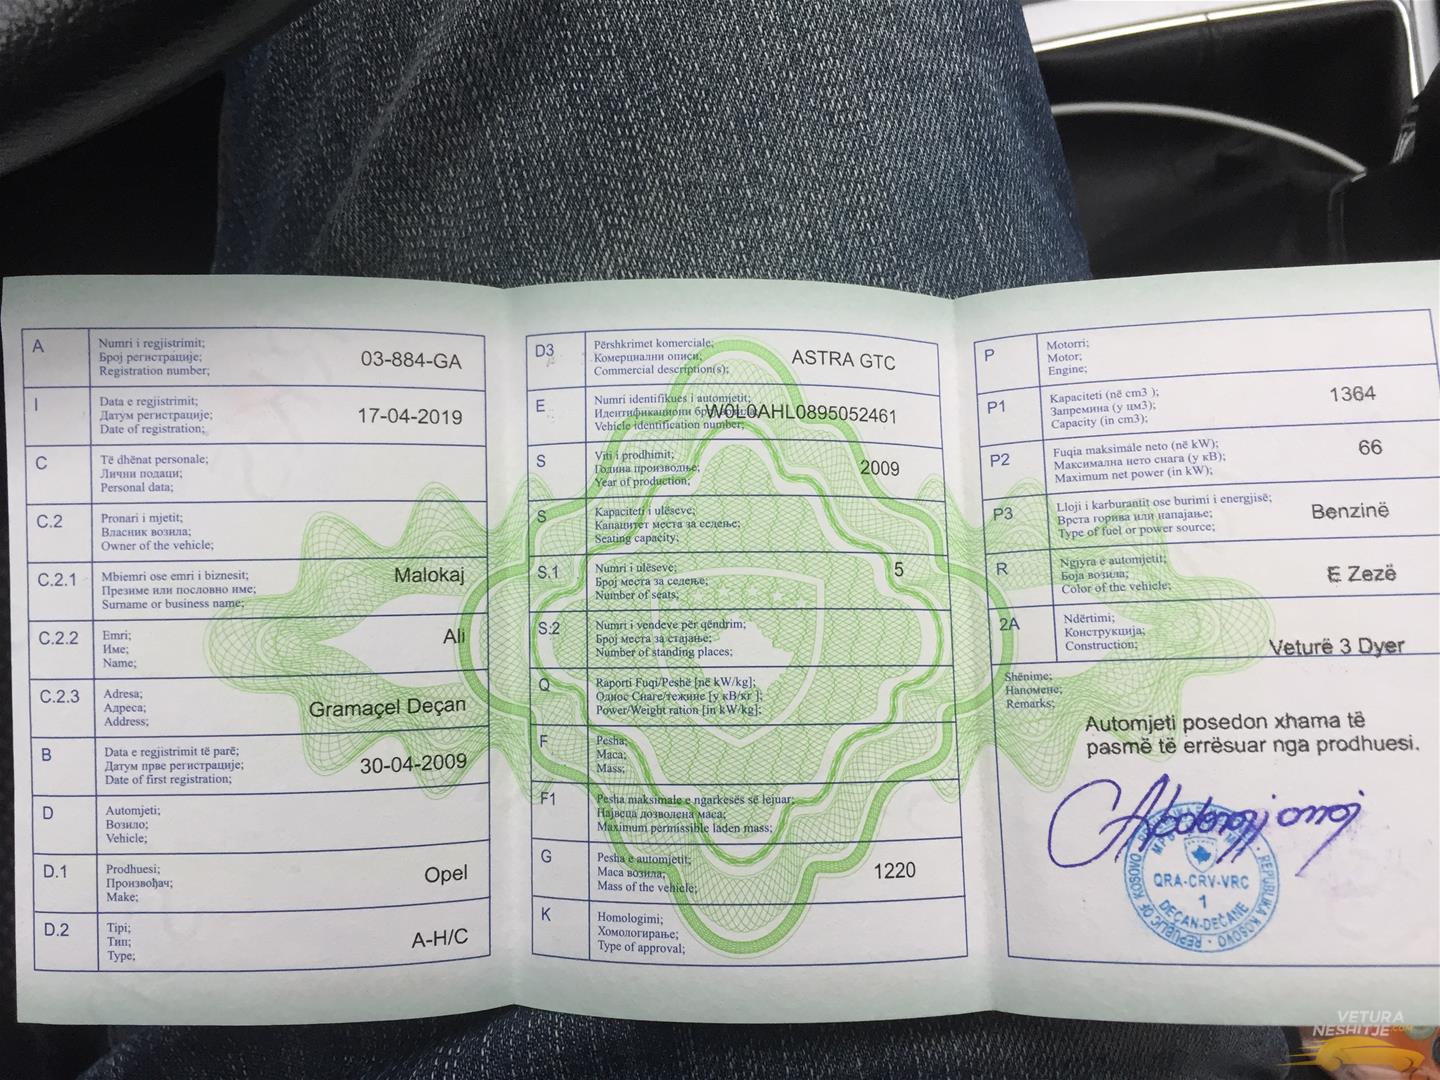 A
Numri i regjistrimit;
Број регистрације;
Registration number;
03-884-GA
I
Data e regjistrimit;
Датум регистрације;
Date of registration;
17-04-2019
C
Të dhënat personale;
Лични подаци;
Personal data;
C.2
Pronari i mjetit;
Власник возила;
Owner of the vehicle;
C.2.1
Mbiemri ose emri i biznesit;
Презиме или пословно име;
Surname or business name;
Malokaj
C.2.2
Emri;
Име;
Name;
Ali
C.2.3
Adresa;
Адреса;
Address;
Gramaçel Deçan
B
Data e regjistrimit të parë;
Датум прве регистрације;
Date of first registration;
30-04-2009
D
Automjeti;
Возило;
Vehicle;
D.1
Prodhuesi;
Произвођач;
Make;
Opel
D.2
Tipi;
Тип;
Type;
A-H/C
D3
Përshkrimet komerciale;
Комерциални описи;
Commercial description(s);
ASTRA GTC
E
Numri identifikues i automjetit;
Идентификациони
Vehicle identification number;
W0L0AHL0895052461
S
Viti i prodhimit;
Година производње;
Year of production;
2009
S
Kapaciteti i ulëseve;
Капацитет места за седење;
Seating capacity;
S.1
Numri i ulëseve;
Број места за седење;
Number of seats;
5
S.2
Numri i vendeve për qëndrim;
Број места за стајање;
Number of standing places;
Q
Raporti Fuqi/Peshë [në kW/kg];
Однос Снаге/тежине [у кВ/кг ];
Power/Weight ration [in kW/kg];
F
Pesha;
Маса;
Mass;
F1
Pesha maksimale e ngarkesës së lejuar;
Највећа дозволена маса;
Maximum permissible laden mass;
G
Pesha e automjetit;
Маса возила;
Mass of the vehicle;
1220
K
Homologimi;
Хомологирање;
Type of approval;
P
Motorri;
Мотор;
Engine;
P1
Kapaciteti (në cm3 );
Запремина (у цм3);
Capacity (in cm3);
1364
P2
Fuqia maksimale neto (në kW);
Максимална нето снага (у кВ);
Maximum net power (in kW);
66
P3
Lloji i karburantit ose burimi i energjisë;
Врста горива или напајање;
Type of fuel or power source;
Benzinë
R
Ngjyra e automjetit;
Боја возила;
Color of the vehicle;
E Zezë
2A
Ndërtimi;
Конструкција;
Construction;
Veturë 3 Dyer
Shënime;
Напомене;
Remarks;
Automjeti posedon xhama të
pasmë të errësuar nga prodhuesi.
QRA-CRV-VRC
1
DEÇAN-DEČANE
REPUBLIKA KOSOVO
REPUBLIC OF KOSOVO
VETURA
NESHITJE.com